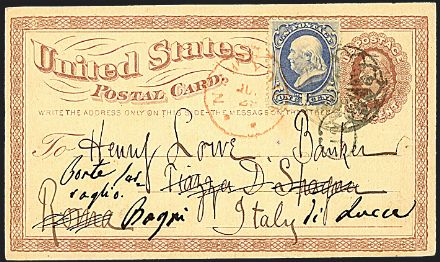 United States
POSTAL CARD.
WRITE THE ADDRESS ONLY ON THIS SIDE-THE MESSAGE ON THE OTHER
To Henry Lowe. Banker
Piazza D. Spagna
Roma Bagni Italy di Lucca